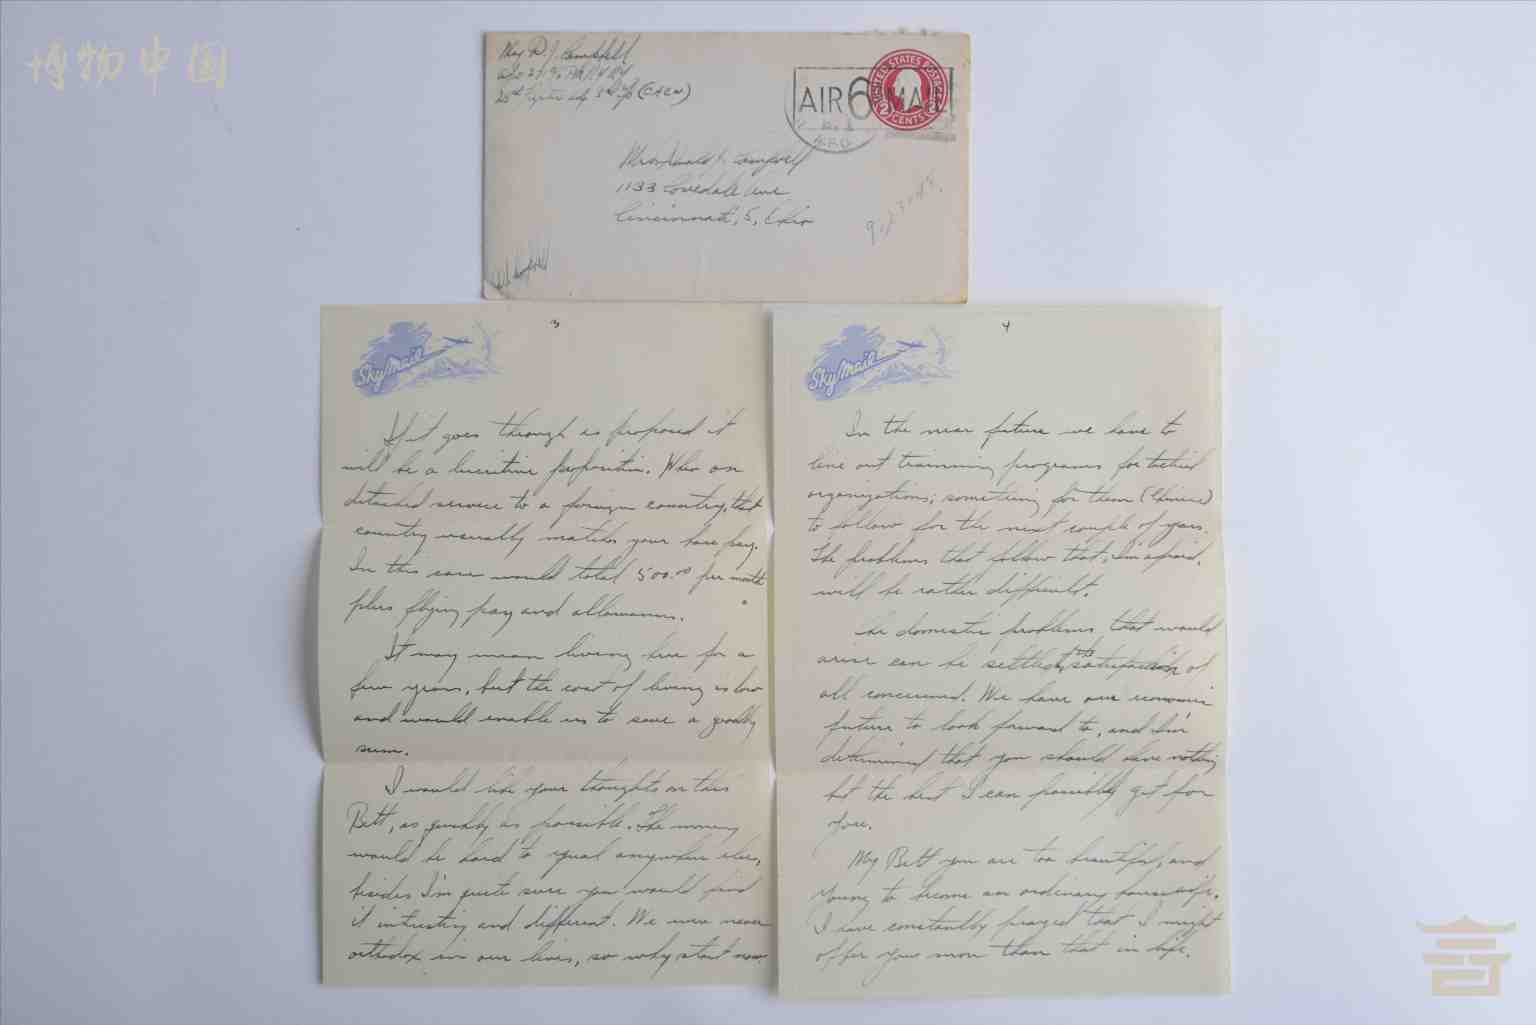 博物中国
Maj D. J. Campbell
APO 271 % PM NY NY
25th Fighter Sq 3rd (CACW)
UNITED STATES POSTAGE
2 CENTS 2
AIR 6 MAIL
Mrs Donald J. Campbell
1133 Covedale Ave
Cincinnati, 5, Ohio
3
Sky Mail
If it goes through as proposed it
will be a lucritive proposition. When on
detached service to a foreign country, that
country usually matches your base pay.
In this case would total 500.00 per month
plus flying pay and allowances.
It may mean living here for a
few years, but the cost of living is low
and would enable us to save a goodly
sum.
I would like your thoughts on this
Bett, as quickly as possible. The money
would be hard to equal anywhere else,
besides I'm quite sure you would find
it intresting and different. We were never
orthodox in our lives, so why start now.
4
Sky Mail
In the near future we have to
line out training programs for tactical
organizations; something for them (Chinese)
to follow for the next couple of years.
The problems that follow that, I'm afraid,
will be rather difficult.
The domestic problems that would
arise can be settled to the satisfaction of
all concerned. We have our economic
future to look forward to, and I'm
determined that you should have nothing
but the best I can possibly get for
you.
My Bett you are too beautiful, and
young to become an ordinary housewife.
I have constantly prayed that I might
offer you more than that in life.